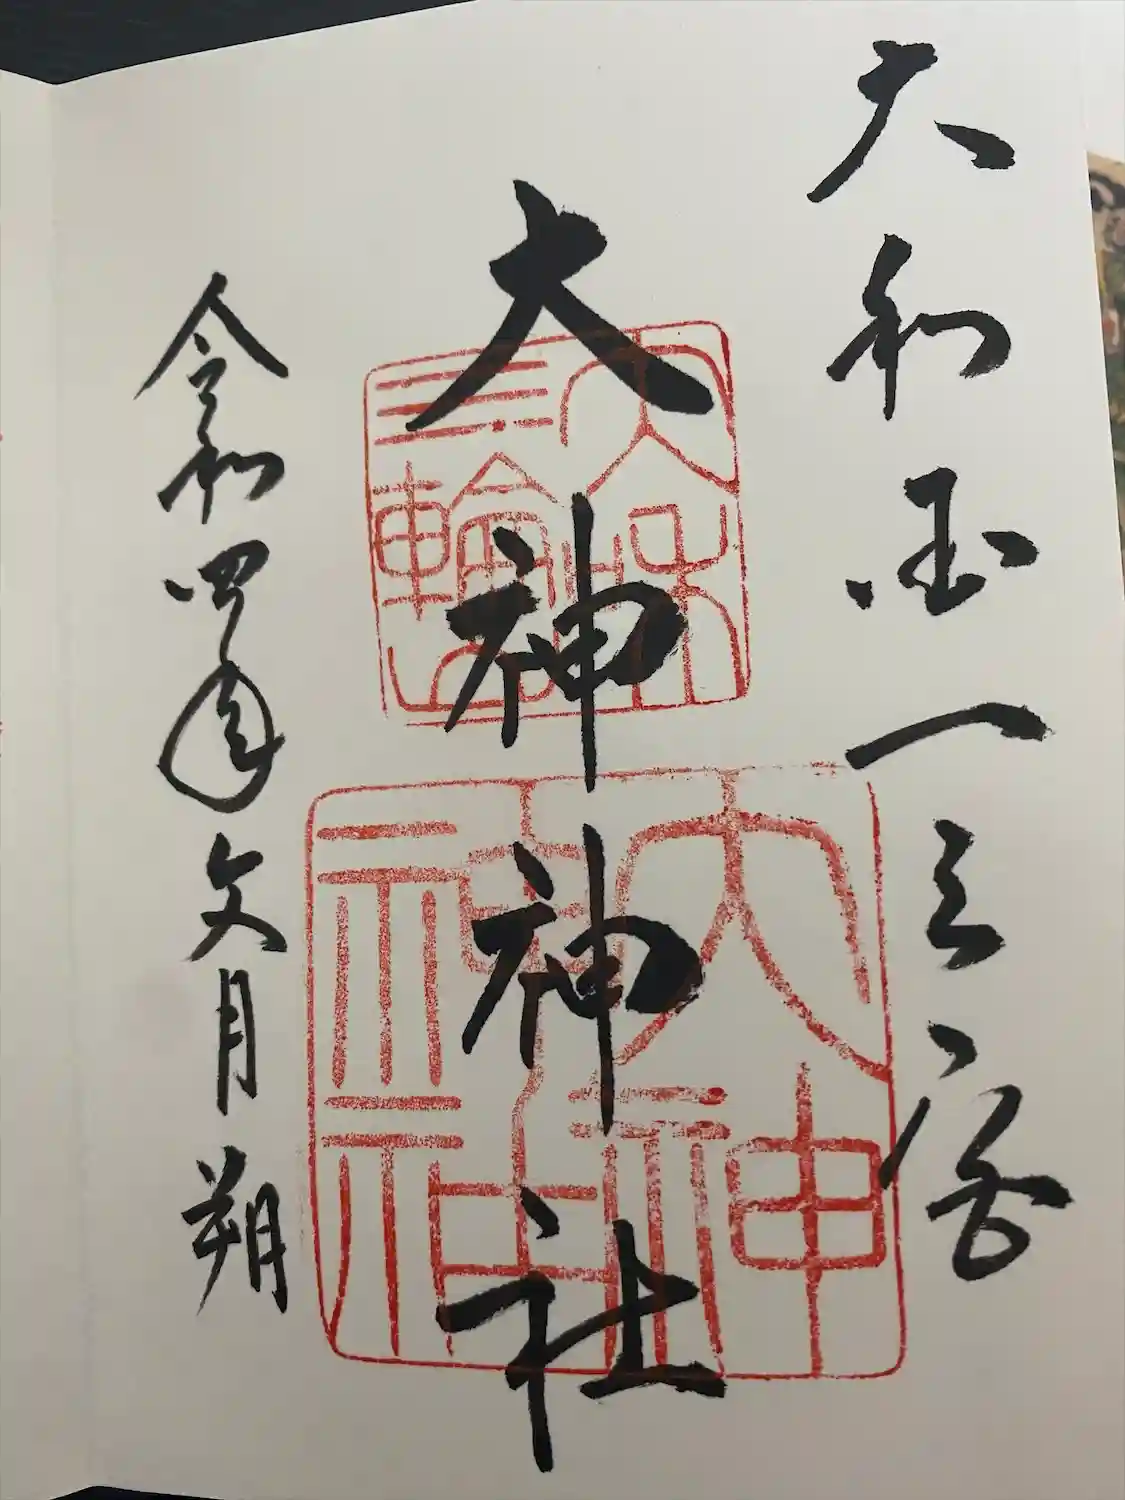 大和国一之宮
大神神社
令和四年文月朔
大神
神社